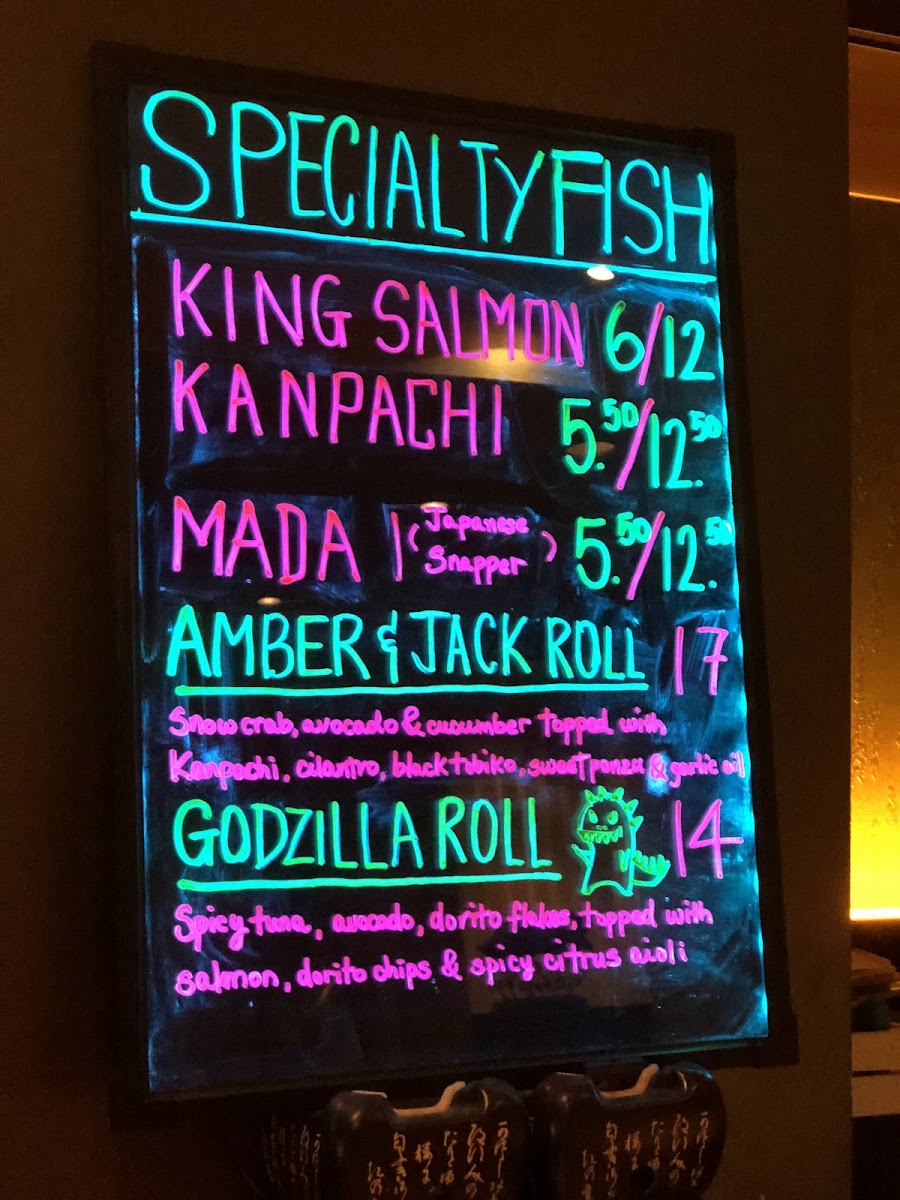 SPECIALTY FISH
KING SALMON 6/12
KANPACHI 5.50/12.50
MADA I (Japanese Snapper) 5.50/12.50
AMBER & JACK ROLL 17
Snow crab, avocado & cucumber topped with
Kanpachi, cilantro, black tobiko, sweet ponzu & garlic oil
GODZILLA ROLL 14
Spicy tuna, avocado, dorito flakes, topped with
salmon, dorito chips & spicy citrus aioli